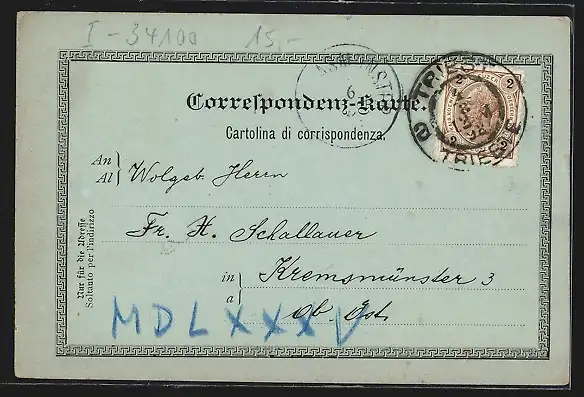 I-34100 15,-
TRIEST
TRIESTE
2 2
2 2
6
Correspondenz-Karte.
Cartolina di corrispondenza.
An
Al
Wolgeb. Herrn
Fr. H. Schallauer
in
a
Kremsmünster 3
Ob. Öst.
Nur für die Adresse
Soltanto per l'indirizzo
MDLXXXV